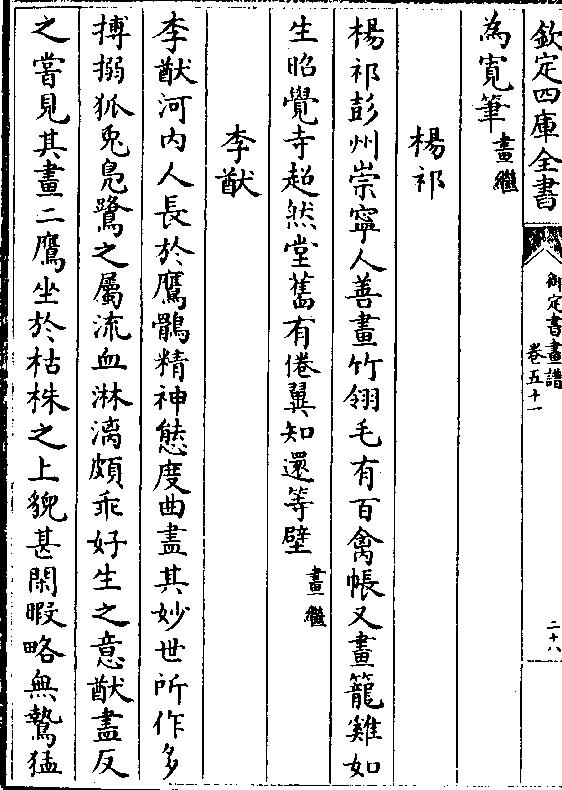 欽定四庫全書
御定書畫譜
卷五十一
二十八
為寛筆畫繼
楊祁
楊祁彭州崇寧人善畫竹翎毛有百禽帳又畫籠雞如
生昭覺寺超然堂舊有倦翼知還等壁畫繼
李猷
李猷河内人長於鷹鶻精神態度曲盡其妙世所作多
搏搦狐兎鳬鷺之屬流血淋漓頗乖好生之意猷盡反
之嘗見其畫二鷹坐於枯株之上貌甚閑暇略無鷙猛